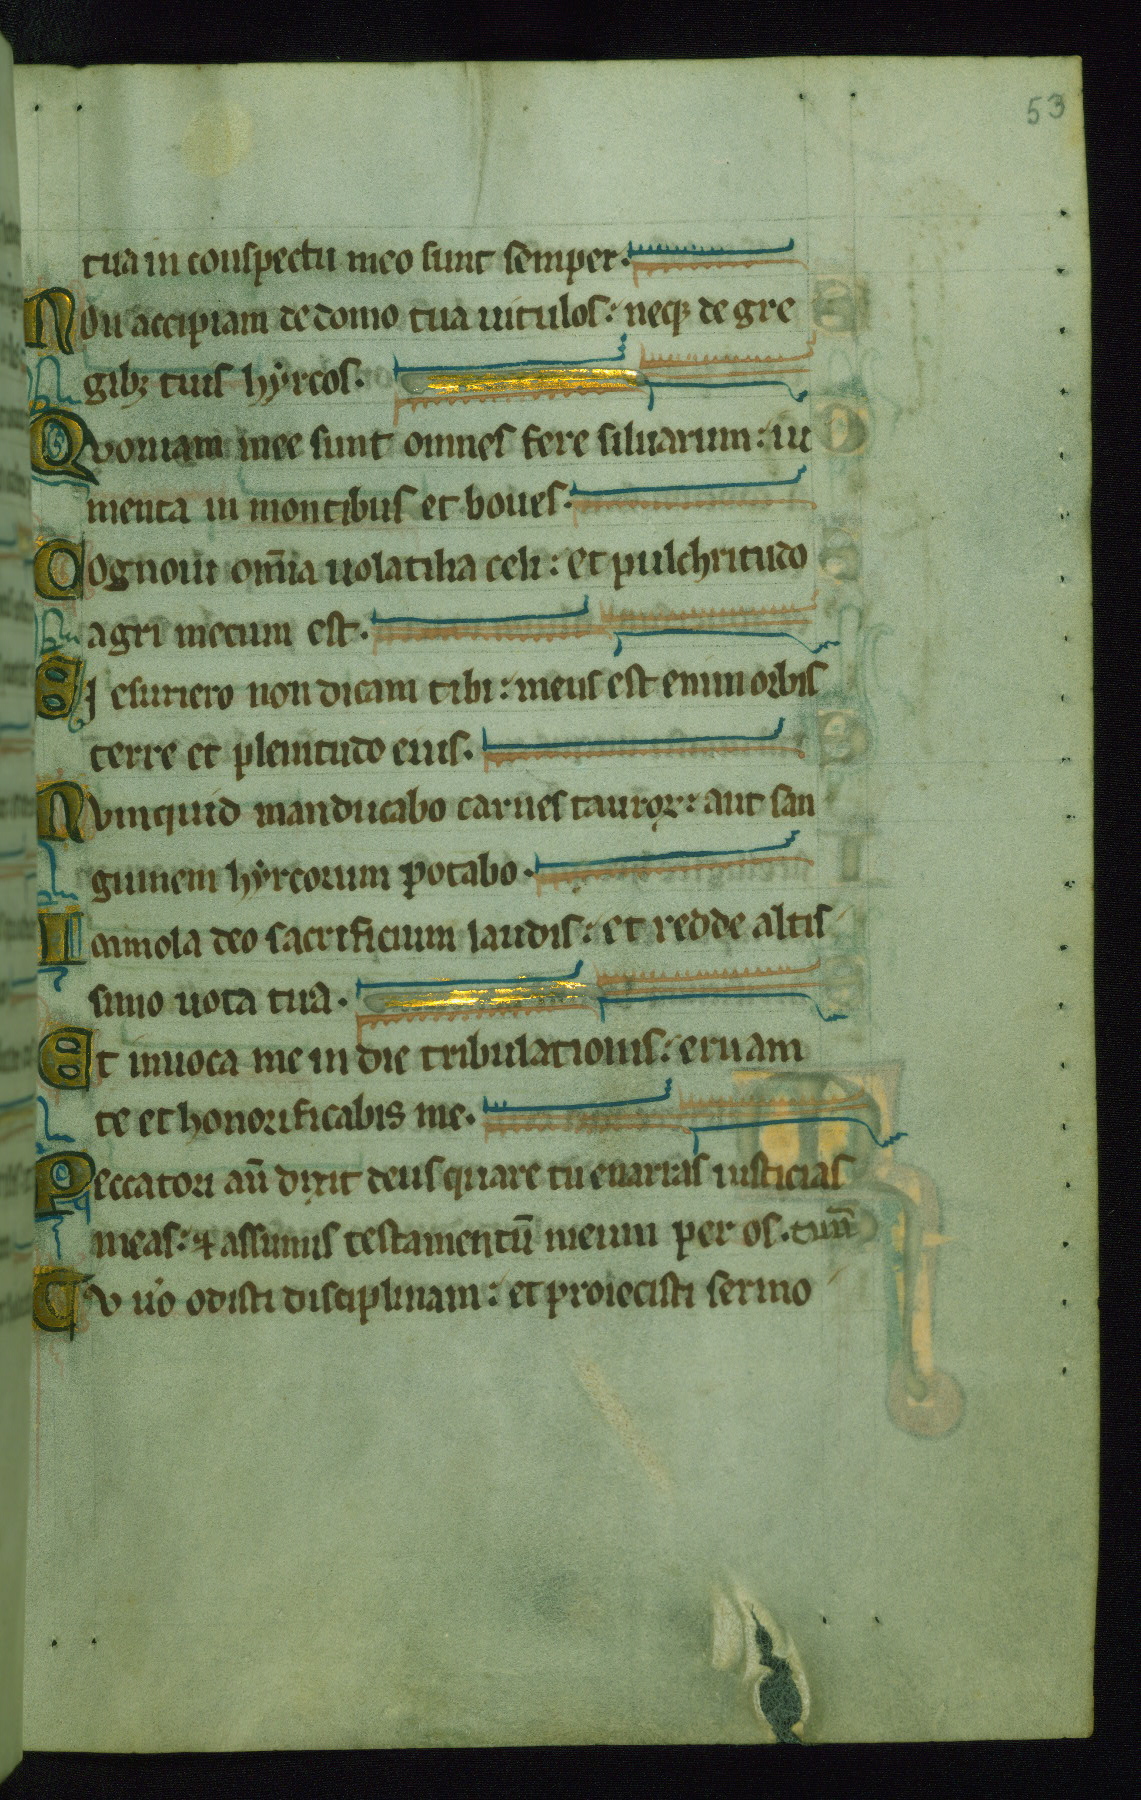 53
tua in conspectu meo sunt semper.
Non accipiam de domo tua uitulos: neq; de gre
gib; tuis hyrcos.
Quoniam mee sunt omnes fere siluarum: iu
menta in montibus et boues.
Cognoui om̄ia uolatilia celi: et pulchritudo
agri mecum est.
Si esuriero non dicam tibi: meus est enim orbis
terre et plenitudo eius.
Nvnquid manducabo carnes tauroꝝ: aut san
guinem hyrcorum potabo.
Inmola deo sacrificium laudis: et redde altis
simo uota tua.
Et inuoca me in die tribulationis: eruam
te et honorificabis me.
Peccatori aū dixit deus quare tu enarras iusticias
meas: ⁊ assumis testamentū meum per os. tuū
Tv u̇o odisti disciplinam: et proiecisti sermo